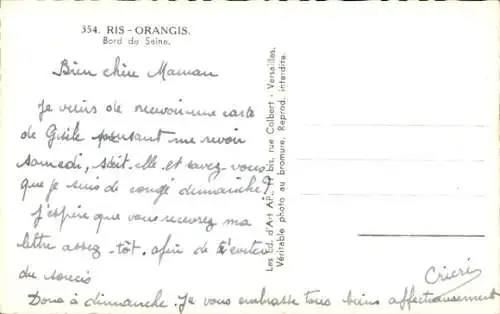 354. RIS-ORANGIS.
Bord de Seine.
Bien chère Maman
Je viens de recevoir une carte
de Gisèle pensant me revoir
samedi, sait-elle et savez-vous
que je suis de congé dimanche ?
J'espère que vous recevrez ma
lettre assez-tôt afin de t'éviter
du soucis
Donc à dimanche. Je vous embrasse tous biens affectueusement
Cricri
Les Ed. d'Art AP., bis, rue Colbert - Versailles.
Véritable photo au bromure. Reprod. interdite.